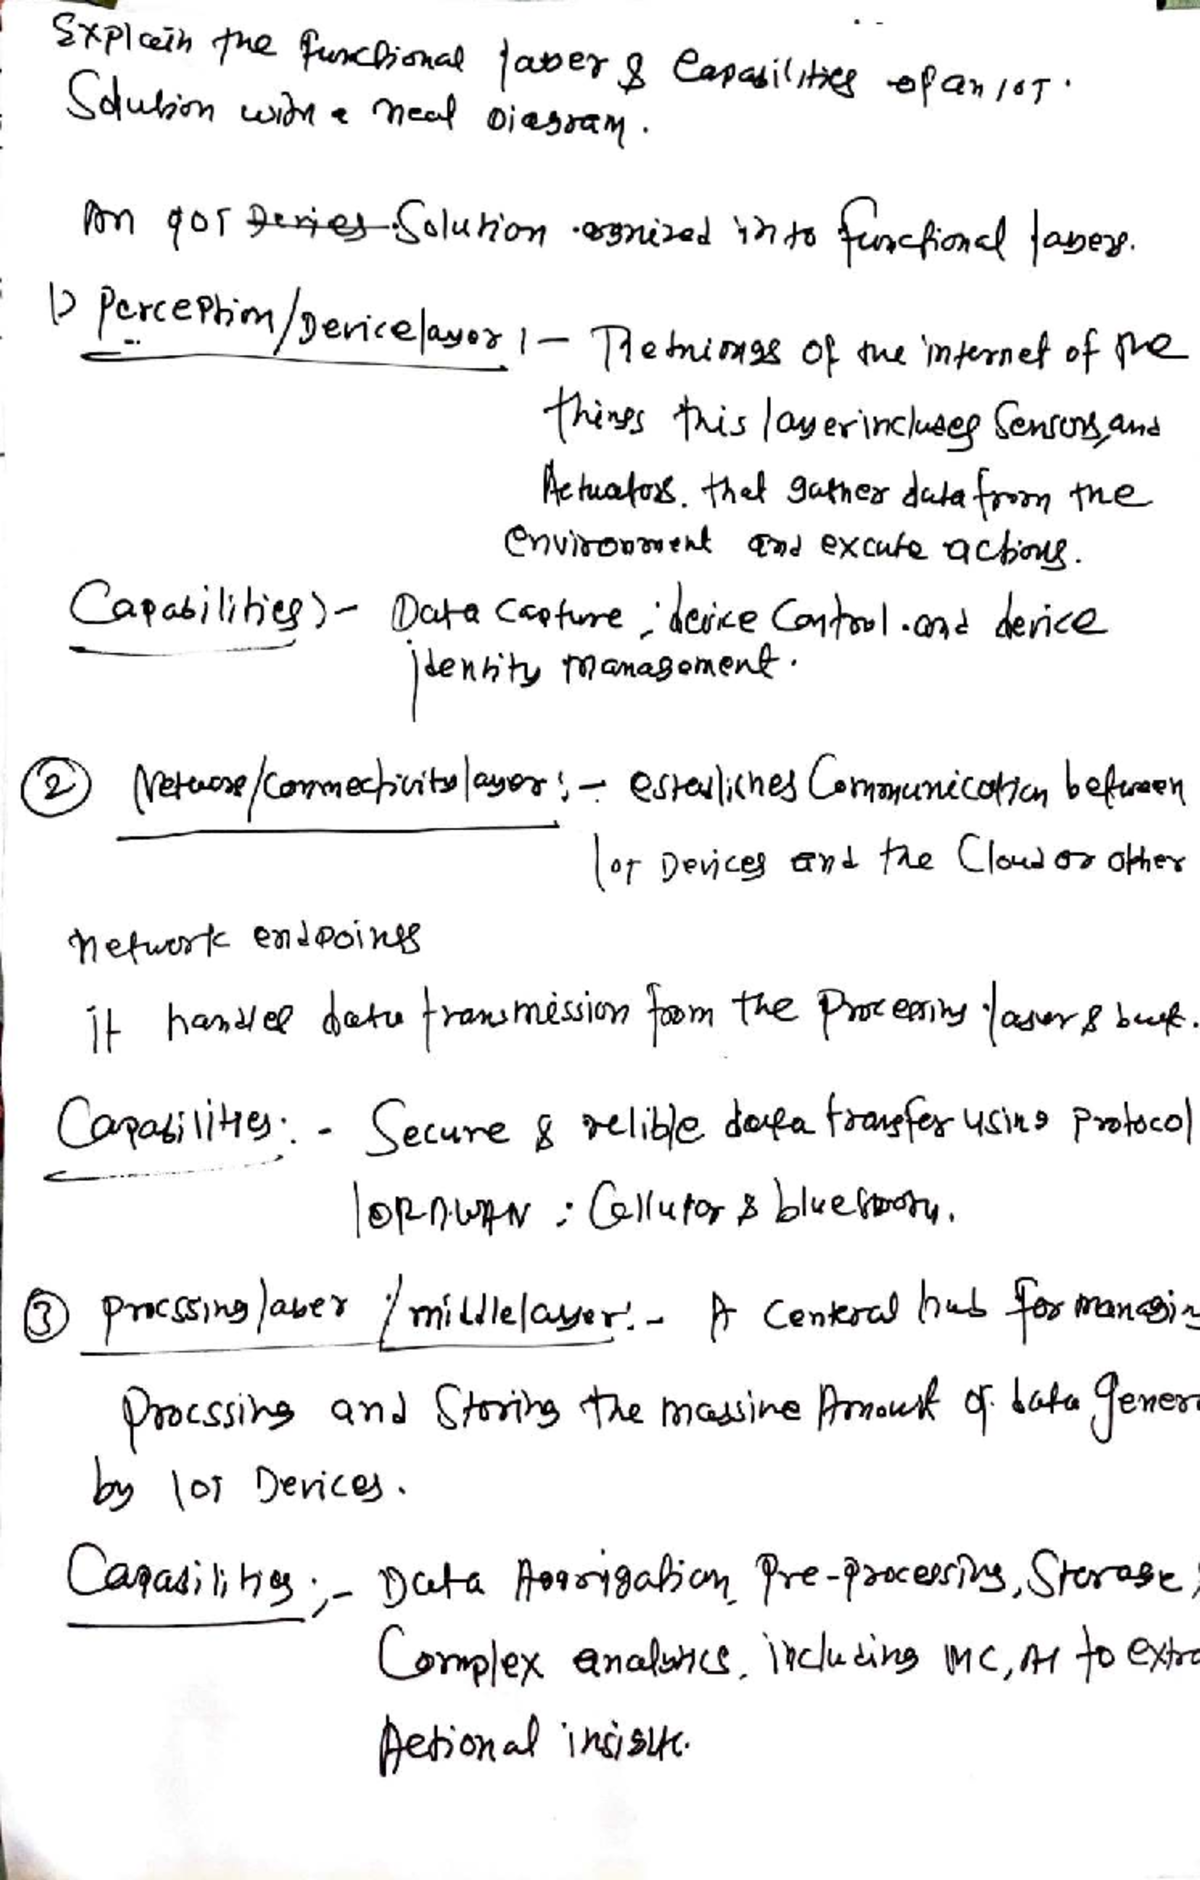 Explain the functional layer & Capabilities of an IOT.
Solution with a neat Diagram.
An IOT Devies Solution ognized into functional layers.
1) Perception/Device layer :- The things of the internet of the
things this layer includes Sensors, and
Actuators. that gather data from the
environment and excute actions.
Capabilities :- Data Capture, device Control. and device
identity management.
② Network/connectivity layer :- establiches Communication between
IOT Devices and the Cloud or other
network endpoints
it handles data transmission from the Processing layer & back.
Capabilities :- Secure & relible data transfer using protocol
LORAWAN, Cellular & bluetooth.
③ Processing layer / middle layer :- A Centeral hub for managing
Procssing and Storing the massive Amount of data Gener
by IOT Devices.
Capabilities :- Data Aggrigation, Pre-processing, Storage,
Complex analytics, including MC, AI to extra
Actional insight.